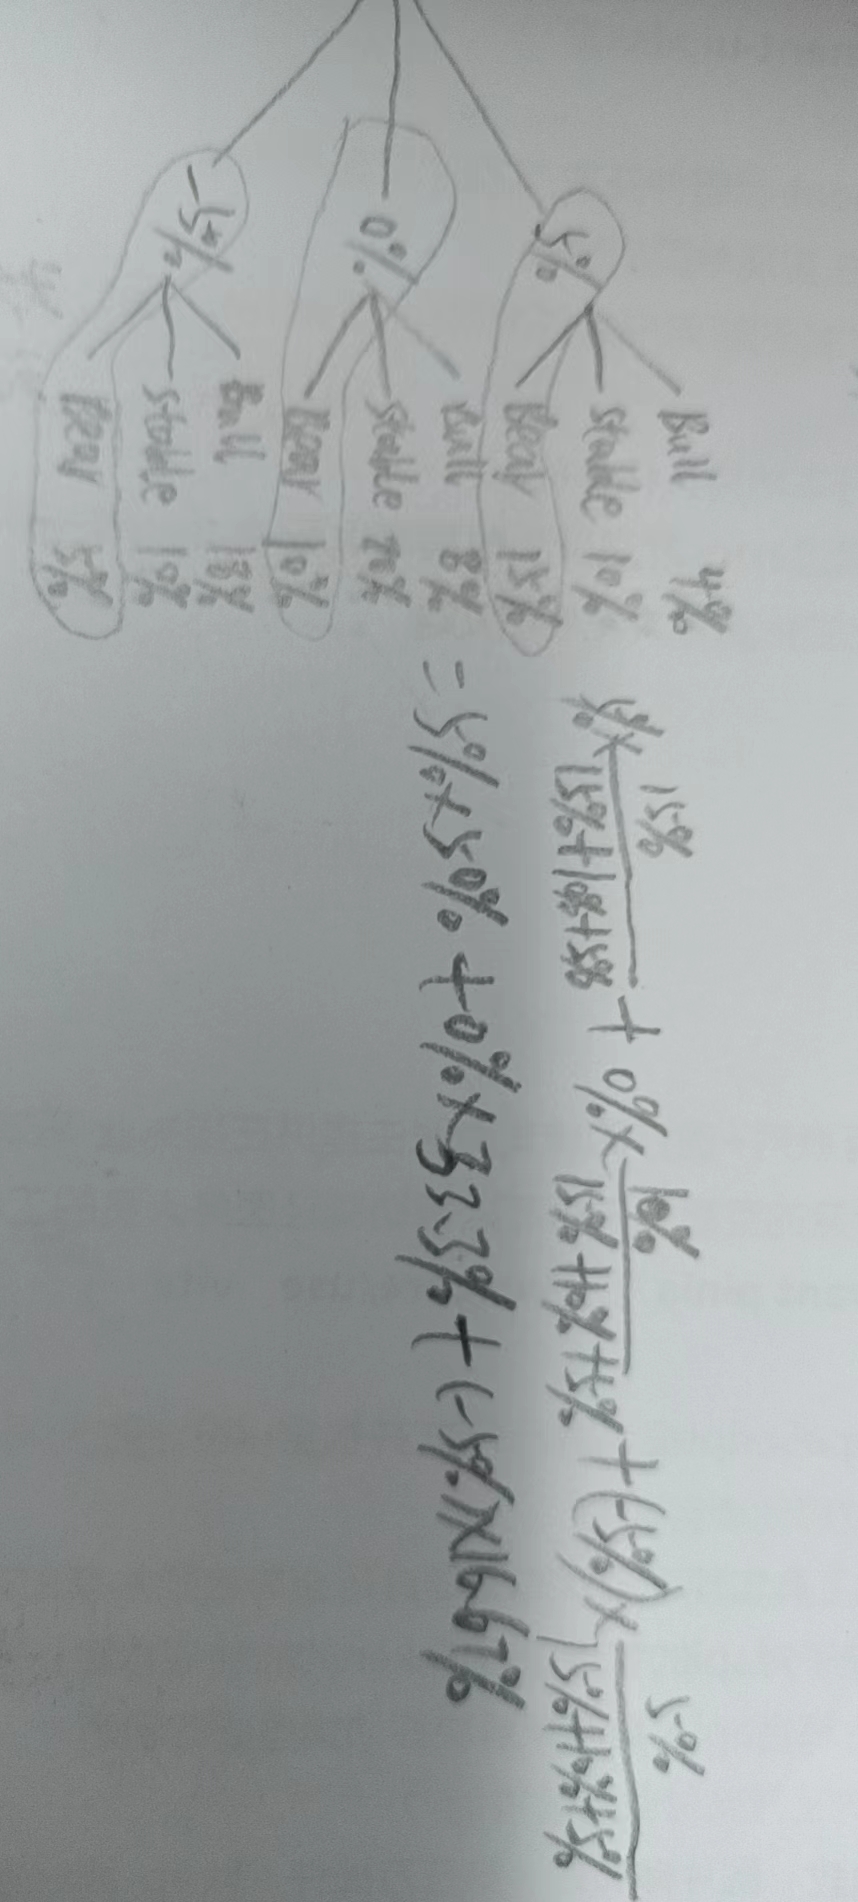 Bull 4%
5% stable 10%
Bear 15%
Bull 8%
0% stable 20%
Bear 10%
Bull 18%
-5% stable 10%
Bear 5%
5% × 15% / 15%+10%+5% + 0% × 10% / 15%+10%+5% + (-5%) × 5% / 15%+10%+5%
= 5% × 50% + 0% × 33.3% + (-5%) × 16.67%